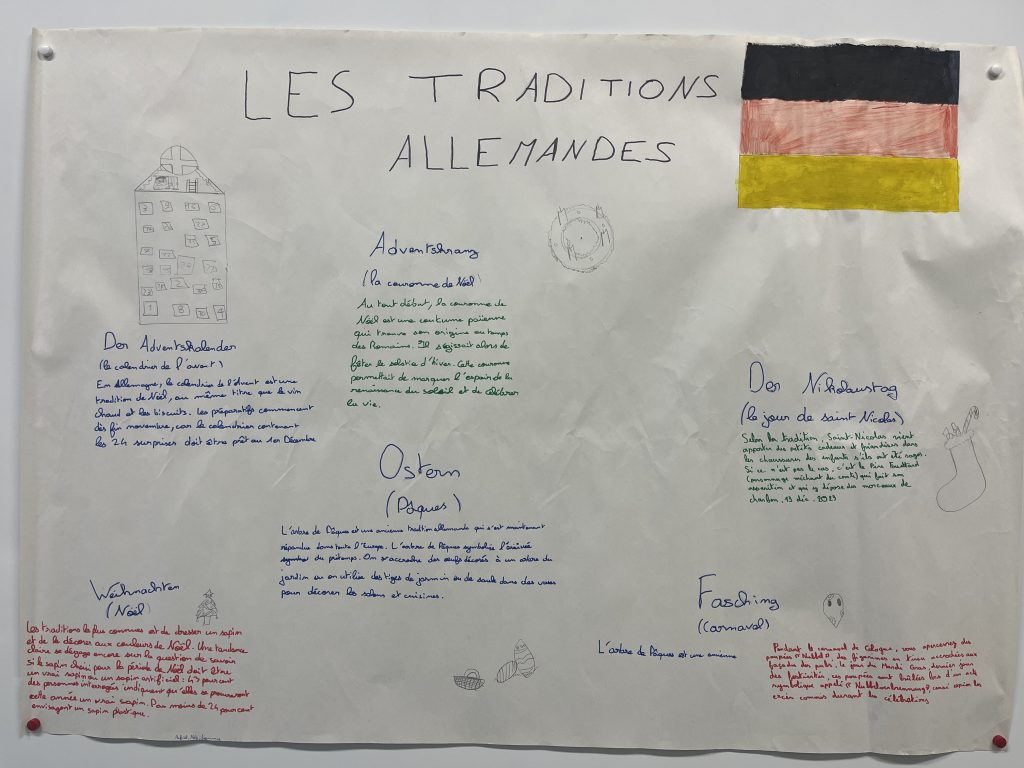 LES TRADITIONS
ALLEMANDES
Der Adventskalender
(le calendrier de l'avant)
En Allemagne, le calendrier de l'Avent est une
tradition de Noël, au même titre que le vin
chaud et les biscuits. Les préparatifs commencent
dès fin novembre, car le calendrier contenant
les 24 surprises doit être prêt au 1er Décembre
Adventskranz
(la couronne de Noël)
Au tout début, la couronne de
Noël est une coutume païenne
qui trouve son origine au temps
des Romains. Il s'agissait alors de
fêter le solstice d'hiver. Cette couronne
permettait de marquer l'espoir de la
renaissance du soleil et de célébrer
la vie.
Ostern
(Pâques)
L'arbre de Pâques est une ancienne tradition allemande qui s'est maintenant
répandue dans toute l'Europe. L'arbre de Pâques symbolise l'arrivée
du printemps. On accroche des œufs décorés à un arbre du
jardin ou on utilise des tiges de jasmin ou de saule dans des vases
pour décorer les salons et cuisines.
Der Nikolaustag
(le jour de saint Nicolas)
Selon la tradition, Saint-Nicolas vient
apporter des petits cadeaux et friandises dans
les chaussures des enfants s'ils ont été sages.
Si ce n'est pas le cas, c'est le Père Fouettard
(personnage méchant du conte) qui fait son
apparition et qui y dépose des morceaux de
charbon. 13 déc. 2023
Weihnachten
(Noël)
Les traditions les plus communes est de dresser un sapin
et de le décorer aux couleurs de Noël. Une tendance
claire se dégage encore sur la question de savoir
si le sapin choisi pour la période de Noël doit être
un vrai sapin ou un sapin artificiel : 47 pour cent
des personnes interrogées indiquent qu'elles se procureront
cette année un vrai sapin. Pas moins de 24 pour cent
envisagent un sapin plastique.
Fasching
(Carnaval)
L'arbre de Pâques est une ancienne
Pendant le carnaval de Cologne, vous apercevrez des
poupées
façades des pubs. Le jour du Mardi Gras dernier jour
des festivités, ces poupées sont brûlées lors d'un acte
symbolique appelé « Nubbelverbrennung »,
durant les célébrations